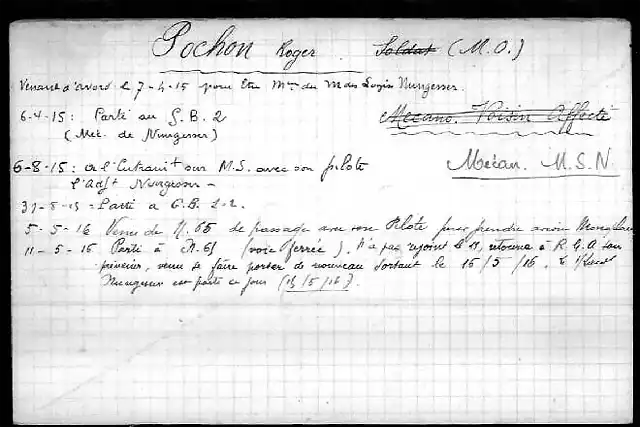 Pochon Roger Soldat (M.O.)
Venant d'avord le 7-4-15 pour être Mᶜⁿ du Mdis Logis Nungesser.
6-4-15: Parti au G.B. 2
(Mec. de Nungesser)
Mecano. Voisin Affecté
6-8-15: a l'Entrainᵗ sur M.S. avec son pilote
l'Adjᵗ Nungesser -
Mécan. M.S.N.
31-8-15 - Parti a G.B. 2-2.
5-5-16 Venu de N.65 de passage avec son Pilote pour prendre avion
11-5-16 Parti à N.65 (voie ferrée). N'a pas rejoint le 11, retourna à R.G.A sans
prévenir, venu se faire porter de nouveau sortant le 15/5/16. Le s/Lieut
Nungesser est parti ce jour (15/5/16).